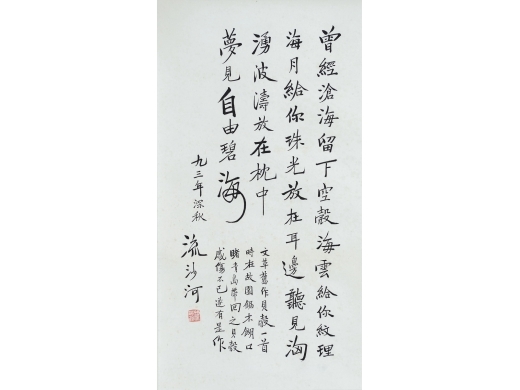 曾經滄海留下空殼海雲給你紋理
海月給你珠光放在耳邊聽見洶
湧波濤放在枕中
夢見自由碧海
九三年深秋
流沙河
文革舊作貝殼一首
時在故園鋸木餬口
睹青島帶回之貝殼
感傷不已遂有是作